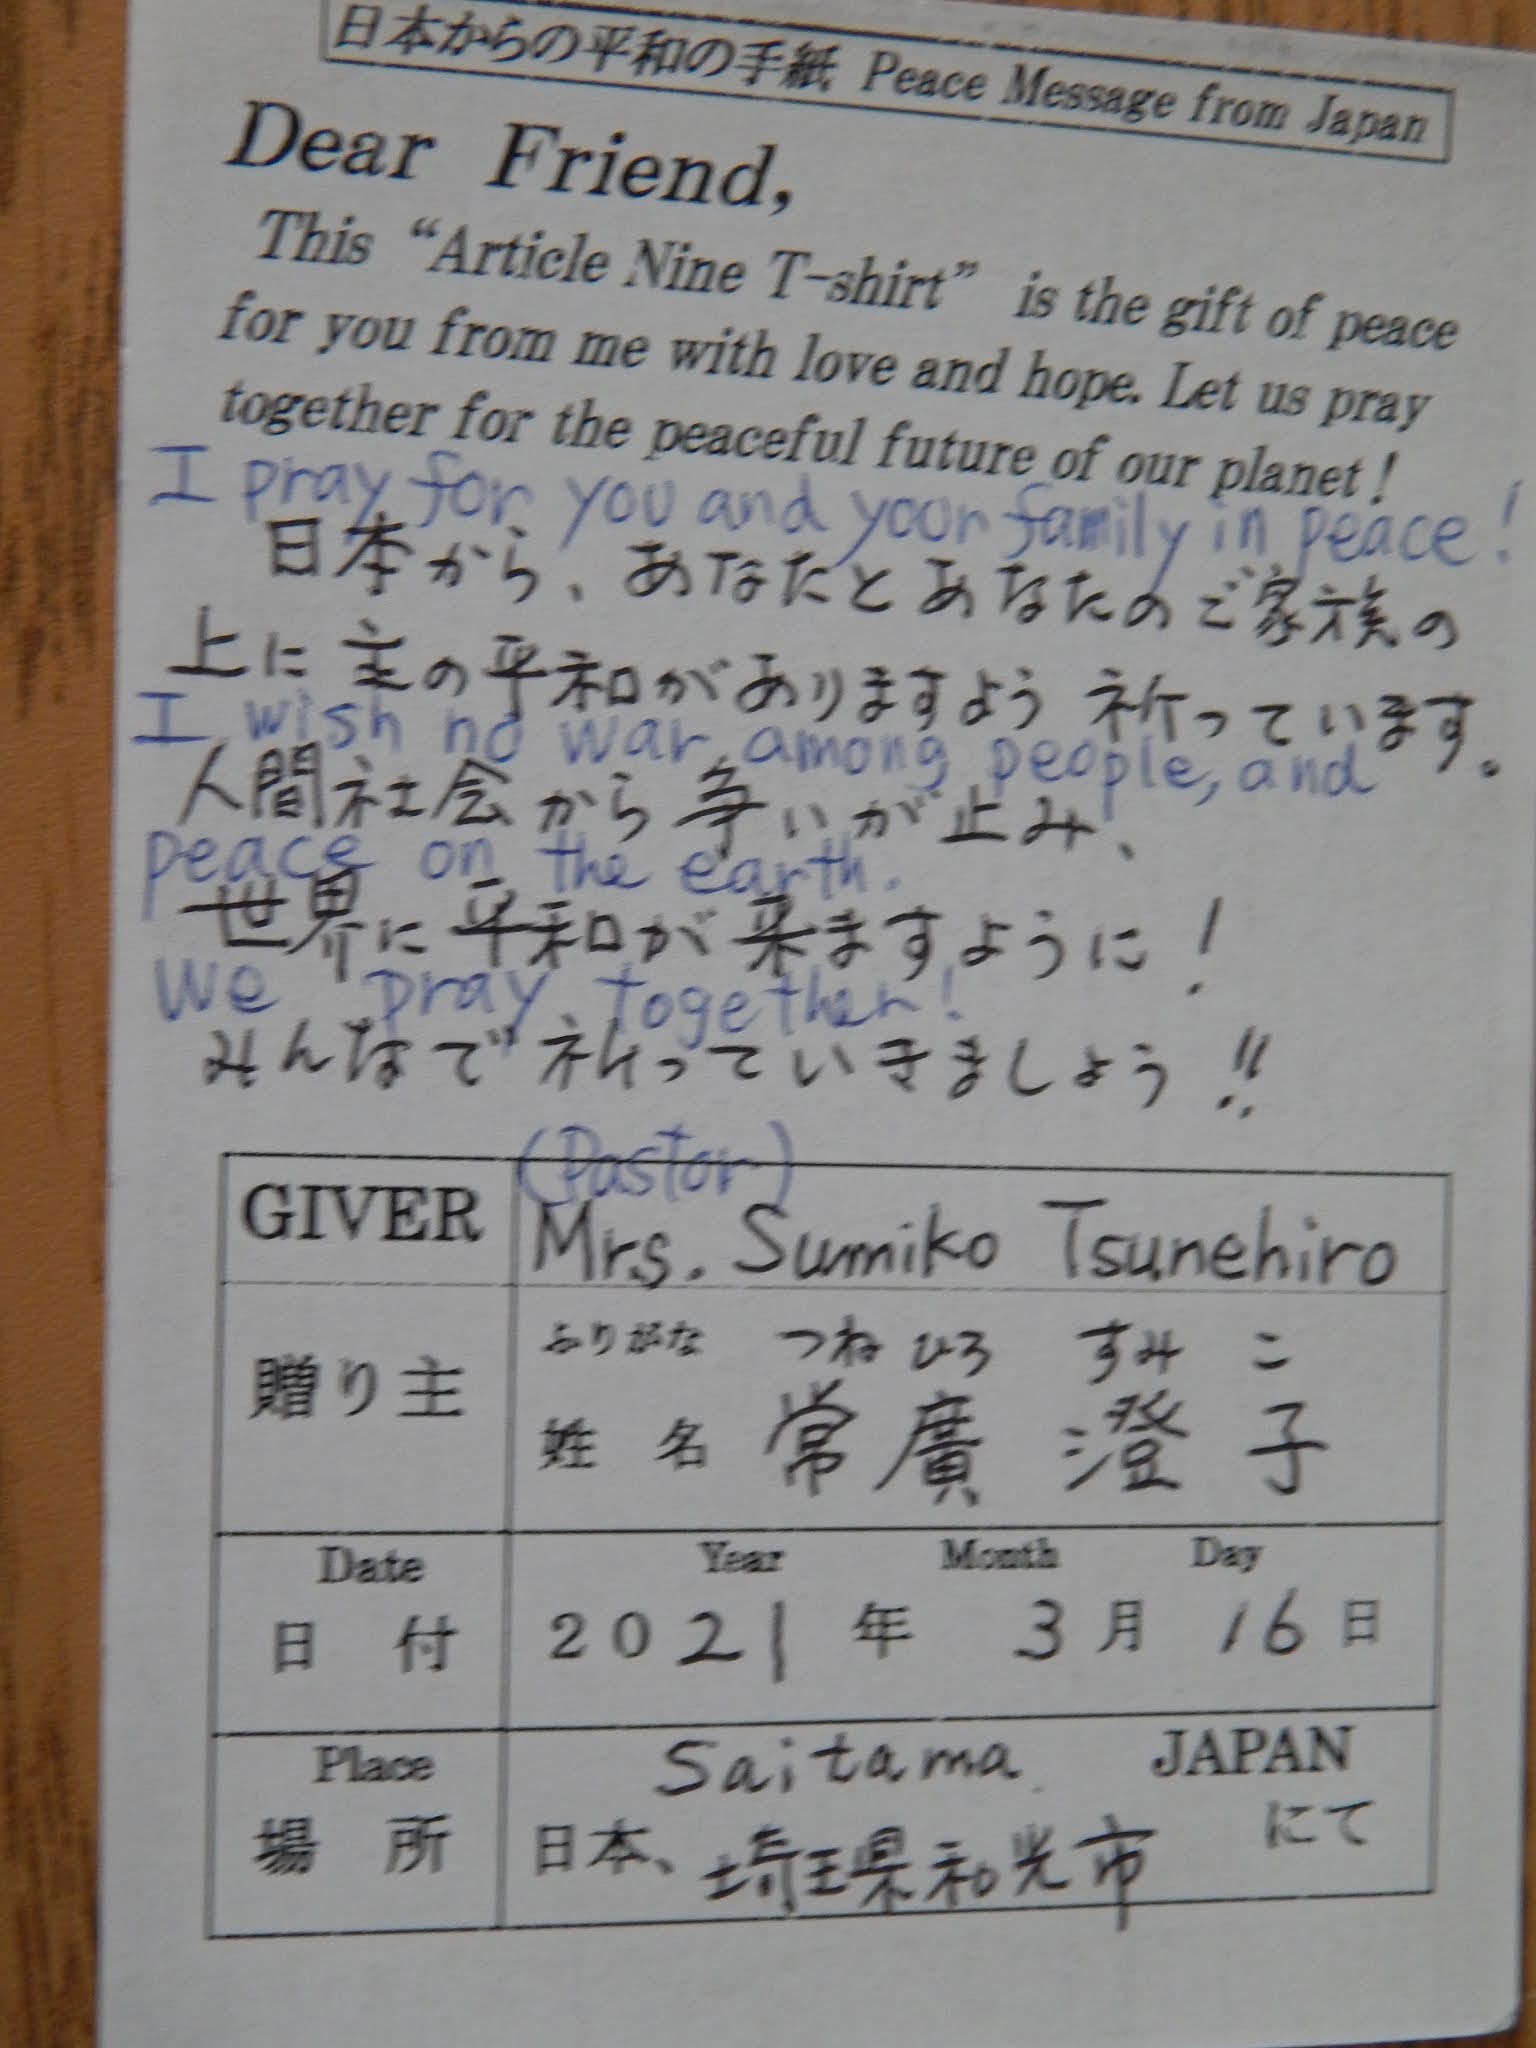 日本からの平和の手紙 Peace Message from Japan
Dear Friend,
This “Article Nine T-shirt” is the gift of peace
for you from me with love and hope. Let us pray
together for the peaceful future of our planet!
I pray for you and your family in peace!
日本から、あなたとあなたのご家族の
上に主の平和がありますよう祈っています。
I wish no war among people, and
人間社会から争いが止み、
peace on the earth.
世界に平和が来ますように!
We pray together!
みんなで祈っていきましょう!!
(Pastor)
GIVER Mrs. Sumiko Tsunehiro
ふりがな つねひろ すみこ
贈り主
姓名 常廣 澄子
Date Year Month Day
日付 2021年 3月 16日
Place Saitama JAPAN
場所 日本、埼玉県和光市 にて